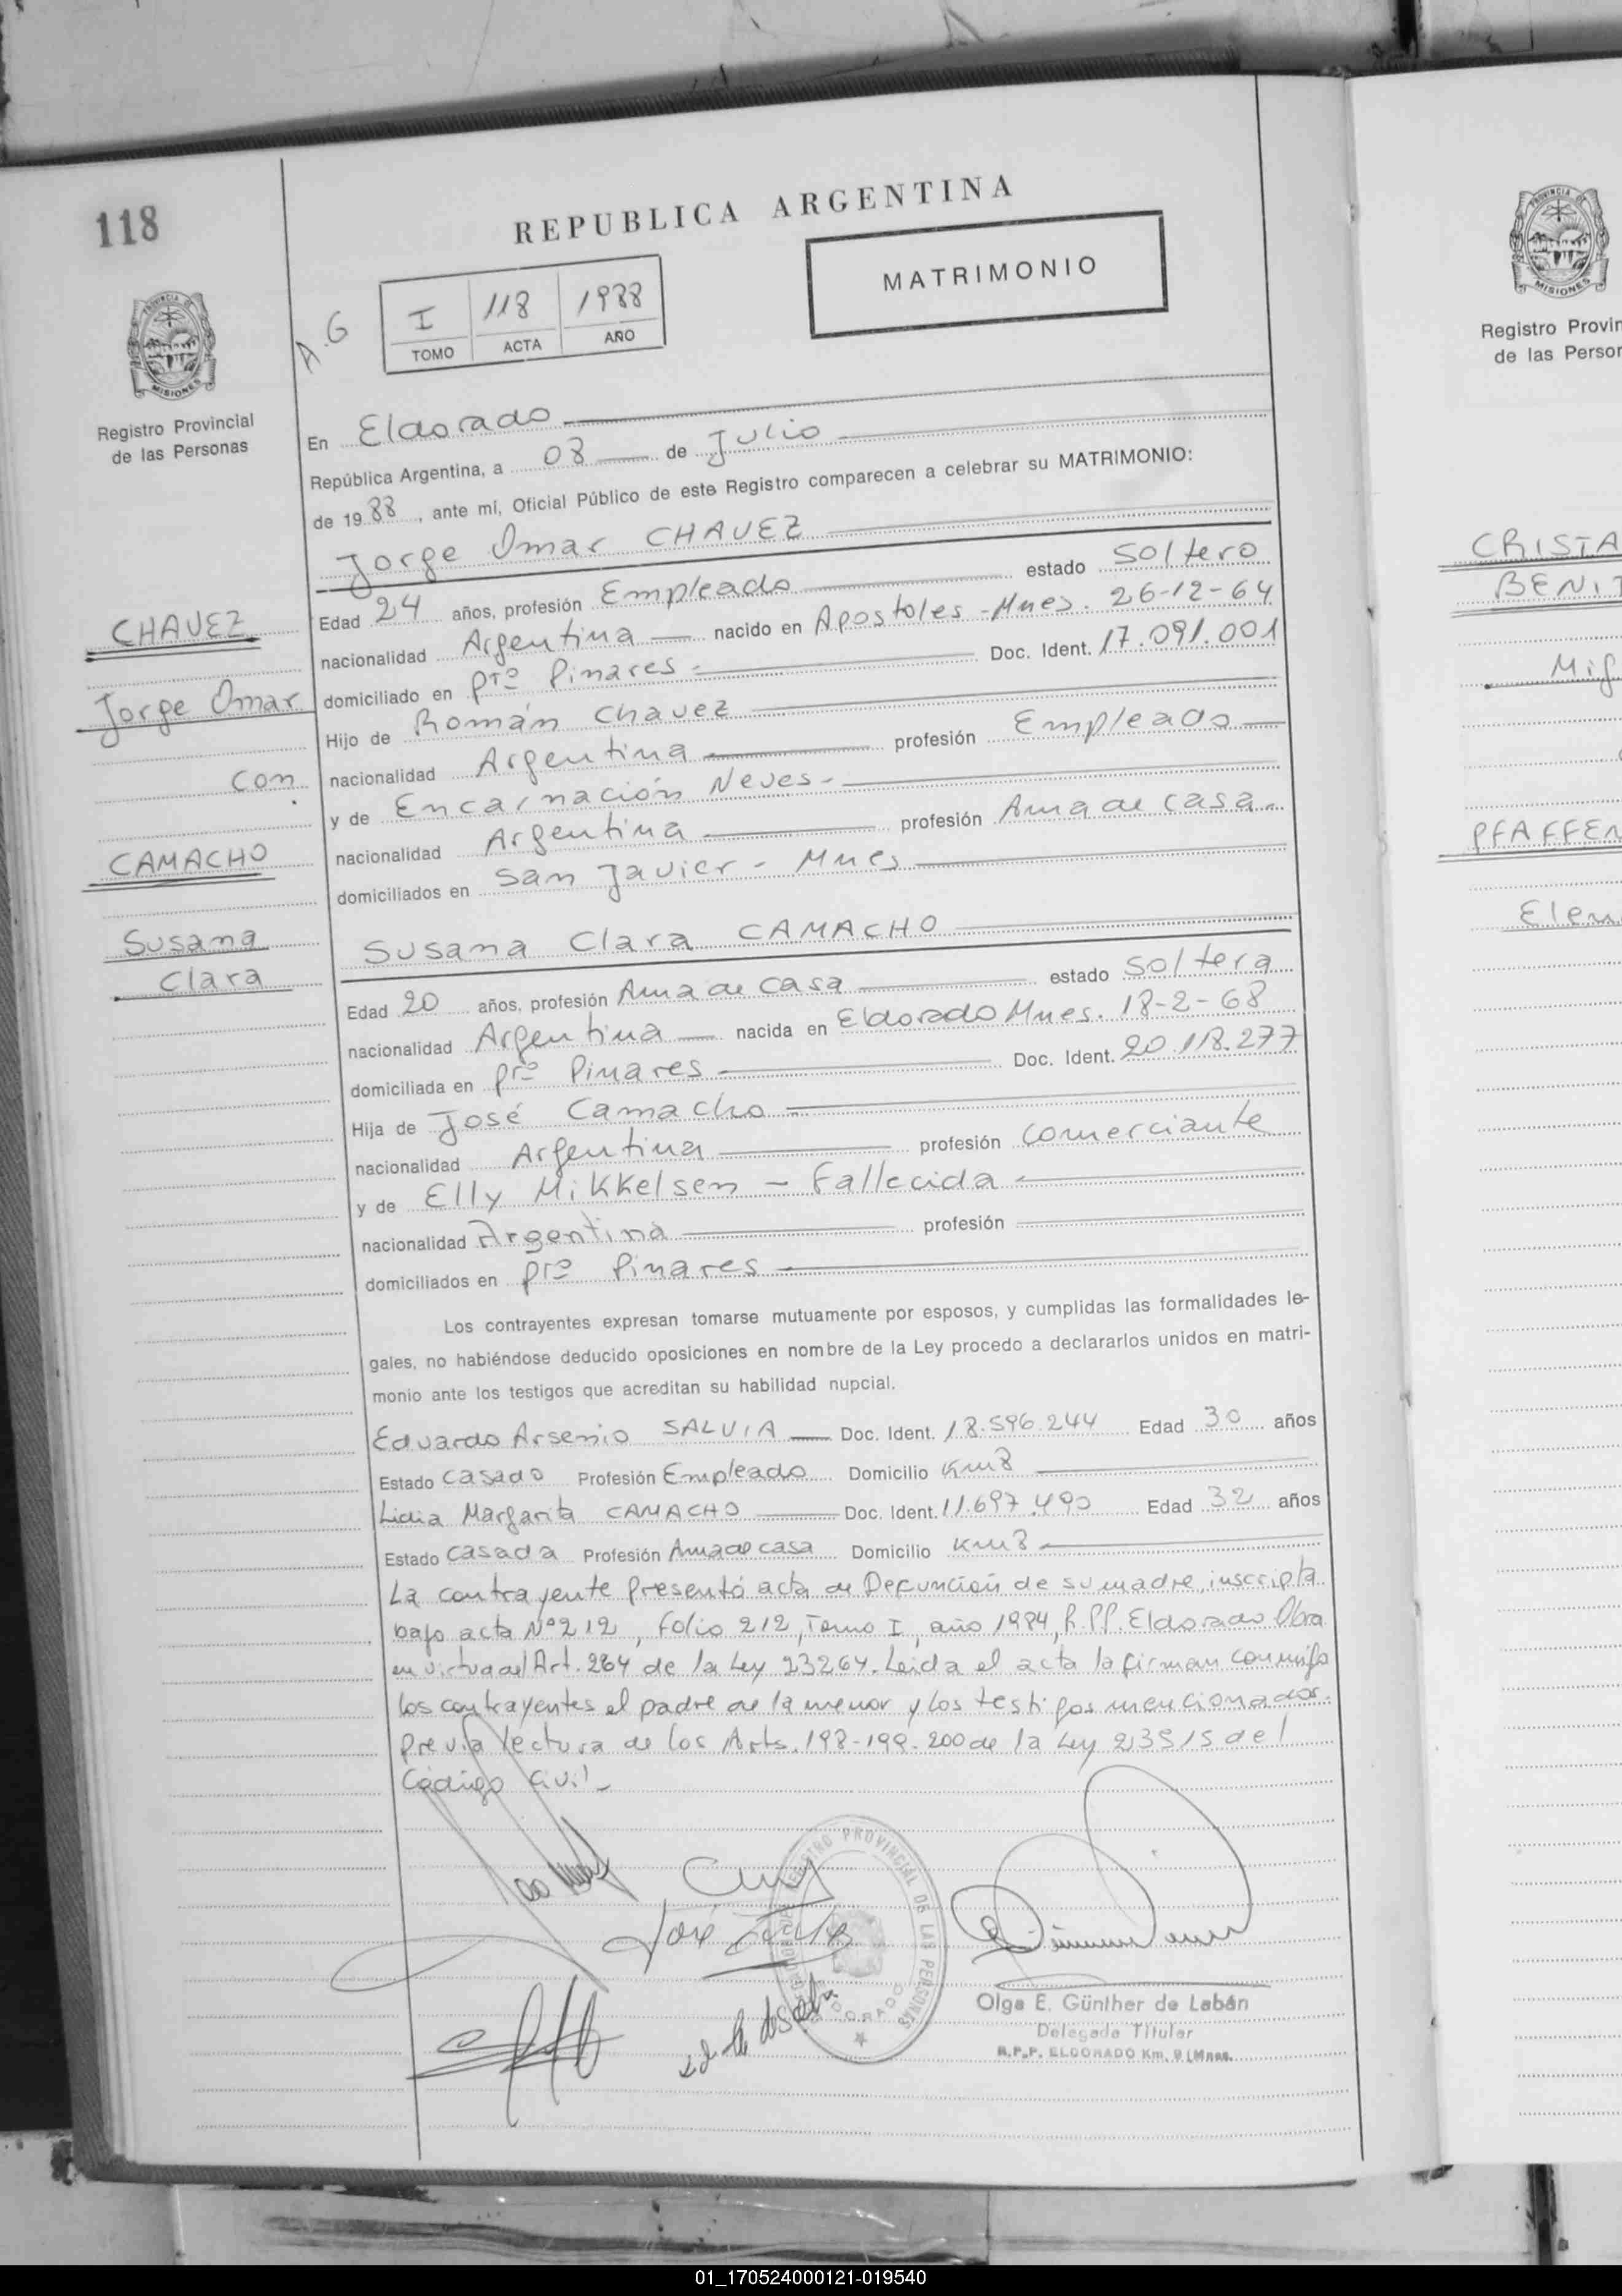 118
REPUBLICA ARGENTINA
MATRIMONIO
A.G
I 118 1988
TOMO ACTA AÑO
PROVINCIA DE
MISIONES
Registro Provincial
de las Personas
En Eldorado
República Argentina, a 08 de Julio
de 1988, ante mí, Oficial Público de este Registro comparecen a celebrar su MATRIMONIO:
Jorge Omar CHAVEZ
Edad 24 años, profesión Empleado estado Soltero
nacionalidad Argentina nacido en Apostoles - Mnes. 26-12-64
domiciliado en Pto Pinares - Doc. Ident. 17.091.001
Hijo de Román Chavez
nacionalidad Argentina profesión Empleado
y de Encarnación Neves -
nacionalidad Argentina profesión Ama de casa.
domiciliados en San Javier - Mnes
CHAVEZ
Jorge Omar
con
CAMACHO
Susana
Clara
Susana Clara CAMACHO
Edad 20 años, profesión Ama de casa estado Soltera
nacionalidad Argentina nacida en Eldorado Mnes. 18-2-68
domiciliada en Pto Pinares Doc. Ident. 20.118.277
Hija de José Camacho
nacionalidad Argentina profesión Comerciante
y de Elly Mikkelsen - Fallecida
nacionalidad Argentina profesión
domiciliados en Pto Pinares
Los contrayentes expresan tomarse mutuamente por esposos, y cumplidas las formalidades le-
gales, no habiéndose deducido oposiciones en nombre de la Ley procedo a declararlos unidos en matri-
monio ante los testigos que acreditan su habilidad nupcial.
Eduardo Arsenio SALVIA Doc. Ident. 18.596.244 Edad 30 años
Estado Casado Profesión Empleado Domicilio Km 8
Lidia Margarita CAMACHO Doc. Ident. 11.697.490 Edad 32 años
Estado Casada Profesión Ama de casa Domicilio Km 8
La contrayente Presentó acta de Defunción de su madre, inscripta
bajo acta Nº 212, Folio 212, Tomo I, año 1984, R.PP. Eldorado Obra
en virtud del Art. 264 de la Ley 23264. Leida el acta la firman conmigo
los contrayentes el padre de la menor y los testigos mencionados.
Previa lectura de los Arts. 198-199-200 de la Ley 23515 del
Código Civil -
REGISTRO PROVINCIAL DE LAS PERSONAS
ELDORADO
Olga E. Günther de Labán
Delegada Titular
R.P.P. ELDORADO Km. 9 (Mnes.
PROVINCIA DE
MISIONES
Registro Provin
de las Person
CRISTA
BENIT
Mig
PFAFFEN
Elen
01_170524000121-019540